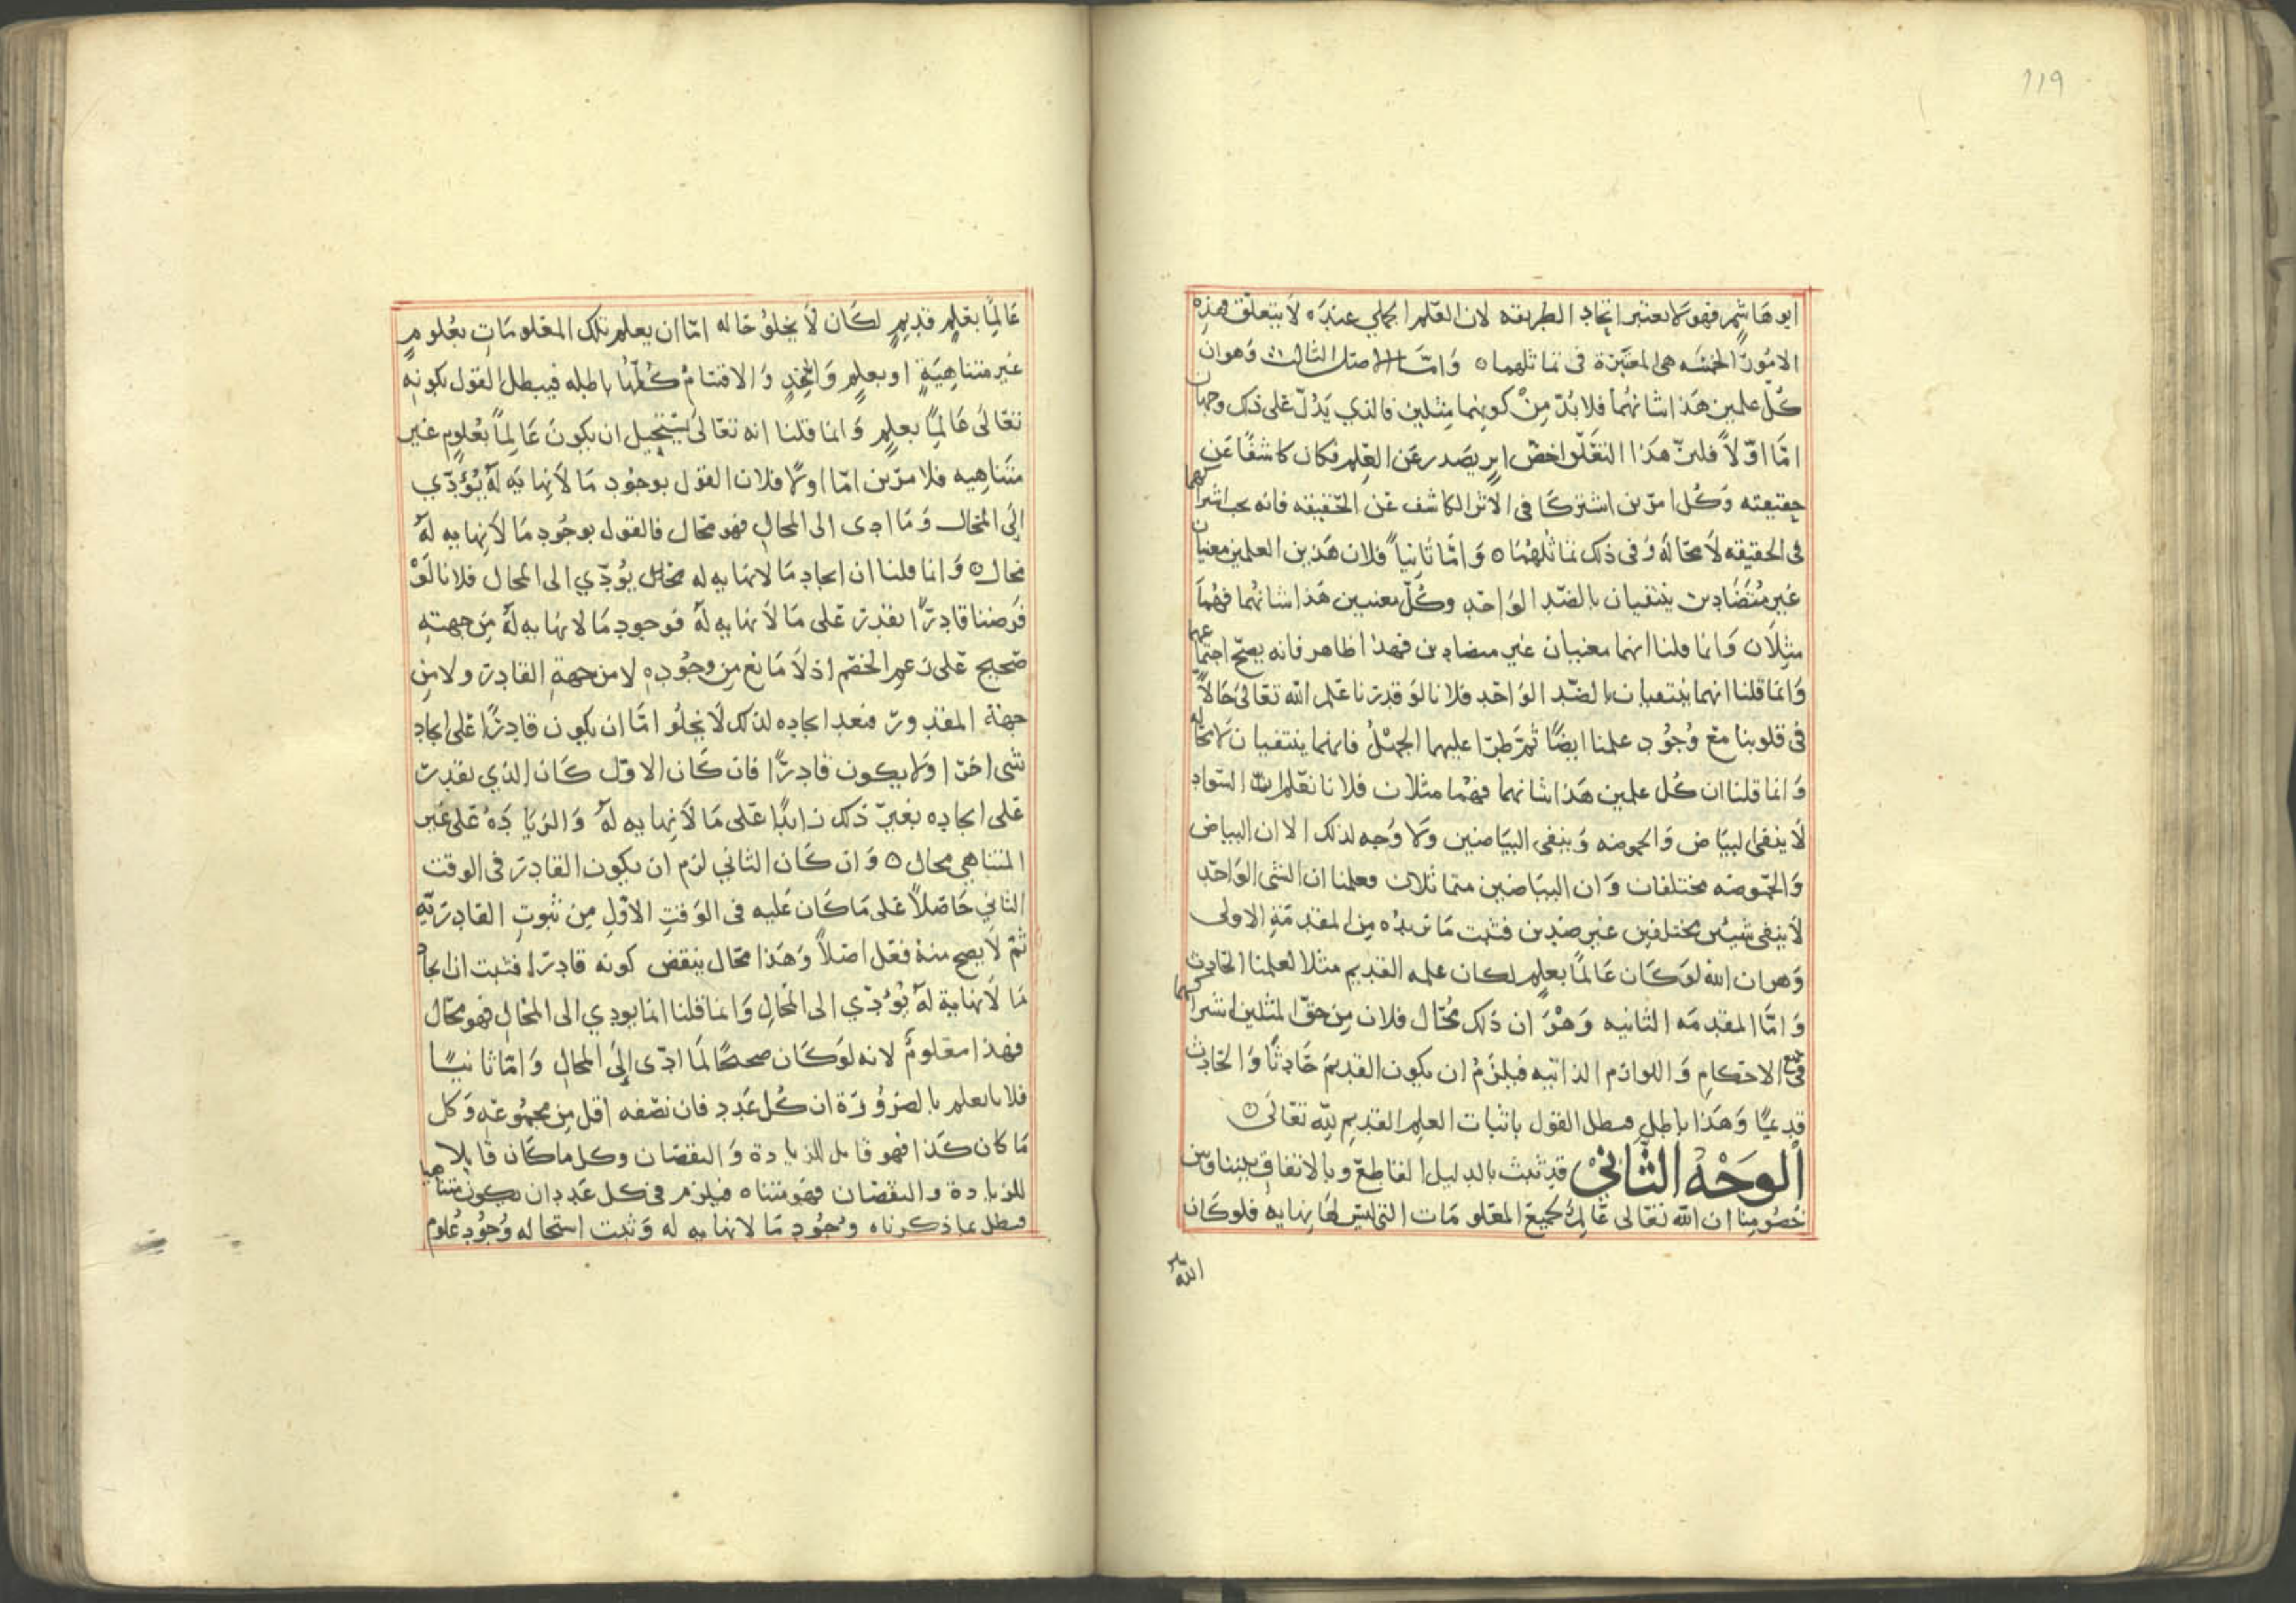 119
ابو هاشم فهو لا يعتبر اتحاد الطريقه لان العلم الجملي عنده لا يتعلق فهذه
الامور الخمسه هي المعتبرة في تماثلهما ٥ وَامَّا الاصل الثالث وَهوان
كُل علمين هَذا شانهُما فلا بُدّ مِنْ كونهما مِثلين فالذي يَدُلّ عَلى ذلك وجهان
امّا اوّلاً فلانّ هَذا التعَلّق اخصّ اثر يصَدر عَن العِلم فكان كاشفًا عَن
حِقيقته وَكُل امرين اشتركَا في الاثر الكاشف عَن الحَقيقه فانه يجب اشتراكهما
في الحقيقه لاَ محَالَه وَفي ذلك تماثلهُمَا ٥ وَامّا ثَانياً فلان هَذين العلمين معنيان
غَير مُتضَادين ينتفيان بالضّد الوَاحد وكُلّ معنيين هَذا شانهُما فهُما
مثِلاَن وَانما قلنا انهما معنيان غَير متضادين فهذا ظاهر فانه يصحّ اجتماعهما
وَانمَا قلنا انهما ينتفيان بالضّد الوَاحد فلانا لوَ قدرنا عَلم الله تعَالى حَالاًّ
في قلوبنا مَع وُجُود علمنا ايضًا ثم طرَا عليهما الجَهْلُ فانهما ينتفيان لا محاله
وَانما قلنا ان كُل علمين هَذا شانهما فهُما مثلان فلانا نعَلم ان السَّواد
لاَ ينفى البيَاض وَالحموضه وَينفى البيَاضين ولا وَجه لذلك الا ان البياض
وَالحمُوضه مختلفان وَان البيَاضين متماثلان فعلمنا ان الشى الوَاحد
لاَ ينفى شيئين مختلفين غَير ضدين فثبت مَا نريدُه مِن المقدمَةِ الاولى
وَهوان الله لوَكَان عَالمًا بعلمٍ لكان علمه القديم مثلا لعلمنا الحَادث
وَامّا المقدمَه الثانيه وَهْوَ ان ذَلك مُحَال فلان مِن حَقّ المثلين اشتراكهما
في جميع الاحكامِ وَاللوازم الذاتيه فيلزَمُ ان يكون القديمُ حَادثًا وَالحَادث
قديمًا وَهَذا باطل فبطل القول باثبات العلم القديم لله تعَالى ٥
اَلوَجْهُ الثَّانيْ قد ثبت بالدليل القاطع وبالاتفاق بيننا وَبين
خُصُومِنا ان الله تعَالى عَالِمٌ بجميع المعَلومَات التي ليسَ لهَا نهايه فلو كَان
الله
عَالِمًا بعَلمٍ قديمٍ لكَان لاَ يخلوُ حَاله امّا ان يعلم تلك المعَلومَاتِ بعُلومٍ
غَير متناهِيَةٍ او بعلمٍ وَاحِدٍ وَالاقسَامُ كُلّهَا باطله فيبطل القول بكونهِ
تعَالى عَالِمًا بعلمٍ وَانما قلنا انه تعَالى يَسْتحِيل ان يكونَ عَالِماً بعُلومٍ غَير
متَناهِيه فلامرَين امّا اولاً فلان القوَل بوجُودِ مَا لاَ نِهايَه لهُ يُؤَدّي
اِلى المحَال وَمَا ادى الى المحال فهو محَال فالقول بوجُودِ مَا لاَ نهايه لهُ
محَال ٥ وَانما قلنا ان ايجاد مَا لا نهايه له محَال يُؤدّي الى المحال فلانا لَوْ
فرَضنا قادرًا يقدر عَلى مَا لاَ نهايه لهُ فوَجود مَا لا نهايه لهُ مِن جهتهِ
صَحيح عَلى زعمِ الخصَم اذ لاَ مَانع مِن وجُودِه لا من جهةِ القادر ولا مِن
جهة المقدور فبعد ايجاده لذلك لاَ يخلُو امَّا ان يكون قادرًا عَلى ايجاد
شى اخر اولا يكون قَادرًا فان كَان الاوّل كَان الذي يقدر
عَلى ايجاده بغَير ذلك زايدًا عَلى مَا لاَ نِهايه لهُ وَالزيَادَهُ عَلى غَير
المتناهي محال ٥ وَان كَان الثاني لزم ان يكون القادرَ في الوقت
الثاني حَاصلاً عَلى مَا كَان عَليه في الوَقتِ الاوّلِ مِن ثبوتِ القادريّةِ
ثمّ لاَ يصح منهُ فعَل اصلاً وَهَذا محَال ينقض كونه قادرًا فثبت ان ايجاد
مَا لاَ نهاية لهُ يُؤدّي الى المحَالِ وَانما قلنا انما يودي الى المحَالِ فهو محَال
فهذا معَلومٌ لانه لوَ كَان صحيحًا لمَا ادّى اِلىَ المحَالِ وَامّا ثانيًا
فلانا نعلم بالضرُورَة ان كُل عَدد فان نصّفه اقل مِن مجمُوعَه وَكل
مَا كان كَذا فهو قابل للزيادة وَالنقصَان وكل ما كَان قابلا
للزيادة والنقصَان فهو متناه فيلزم في كل عَددٍ ان يكون متناهيا
فبطل بما ذكرناه وجُودِ مَا لا نهايه له وَثبت استحاله وُجُودِ عُلوم